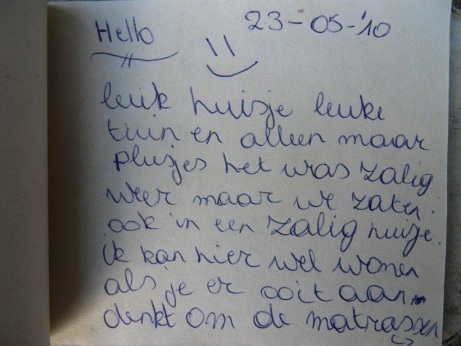 Hello
23-05-'10
leuk huisje leuke
tuin en alleen maar
plusjes het was zalig
weer maar we zaten
ook in een zalig huisje.
ik kan hier wel wonen
als je er ooit aan
denkt om de matrassen